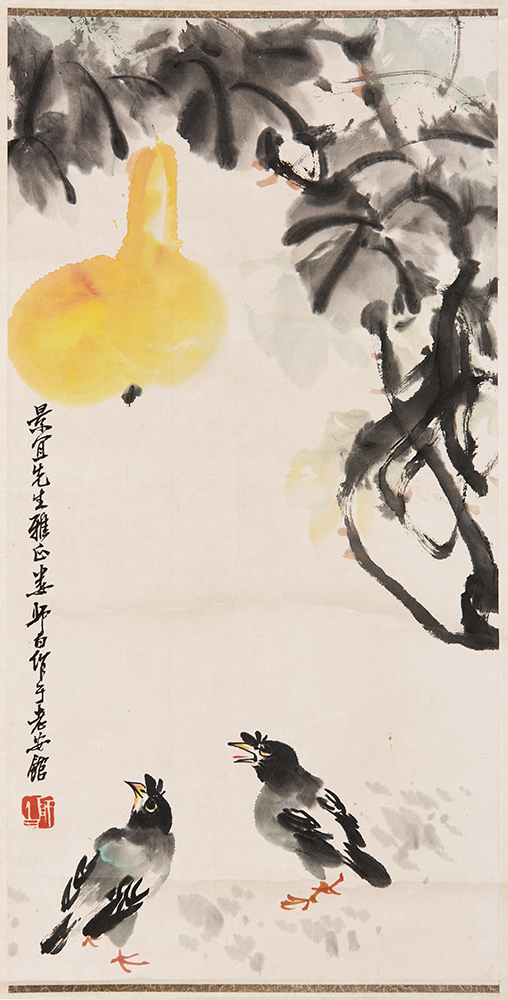 景宜先生雅正娄师白作于老安馆